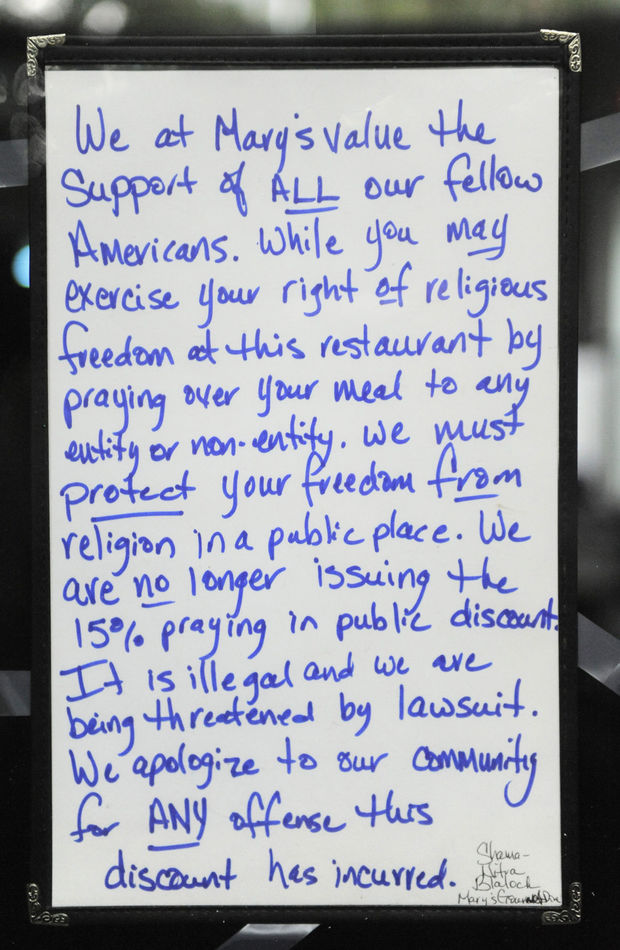 We at Mary's value the
Support of ALL our fellow
Americans. While you may
exercise your right of religious
freedom at this restaurant by
praying over your meal to any
entity or non-entity. We must
protect your freedom from
religion in a public place. We
are no longer issuing the
15% praying in public discount.
It is illegal and we are
being threatened by lawsuit.
We apologize to our community
for ANY offense this
discount has incurred.
Shama-
Blalock
Mary's